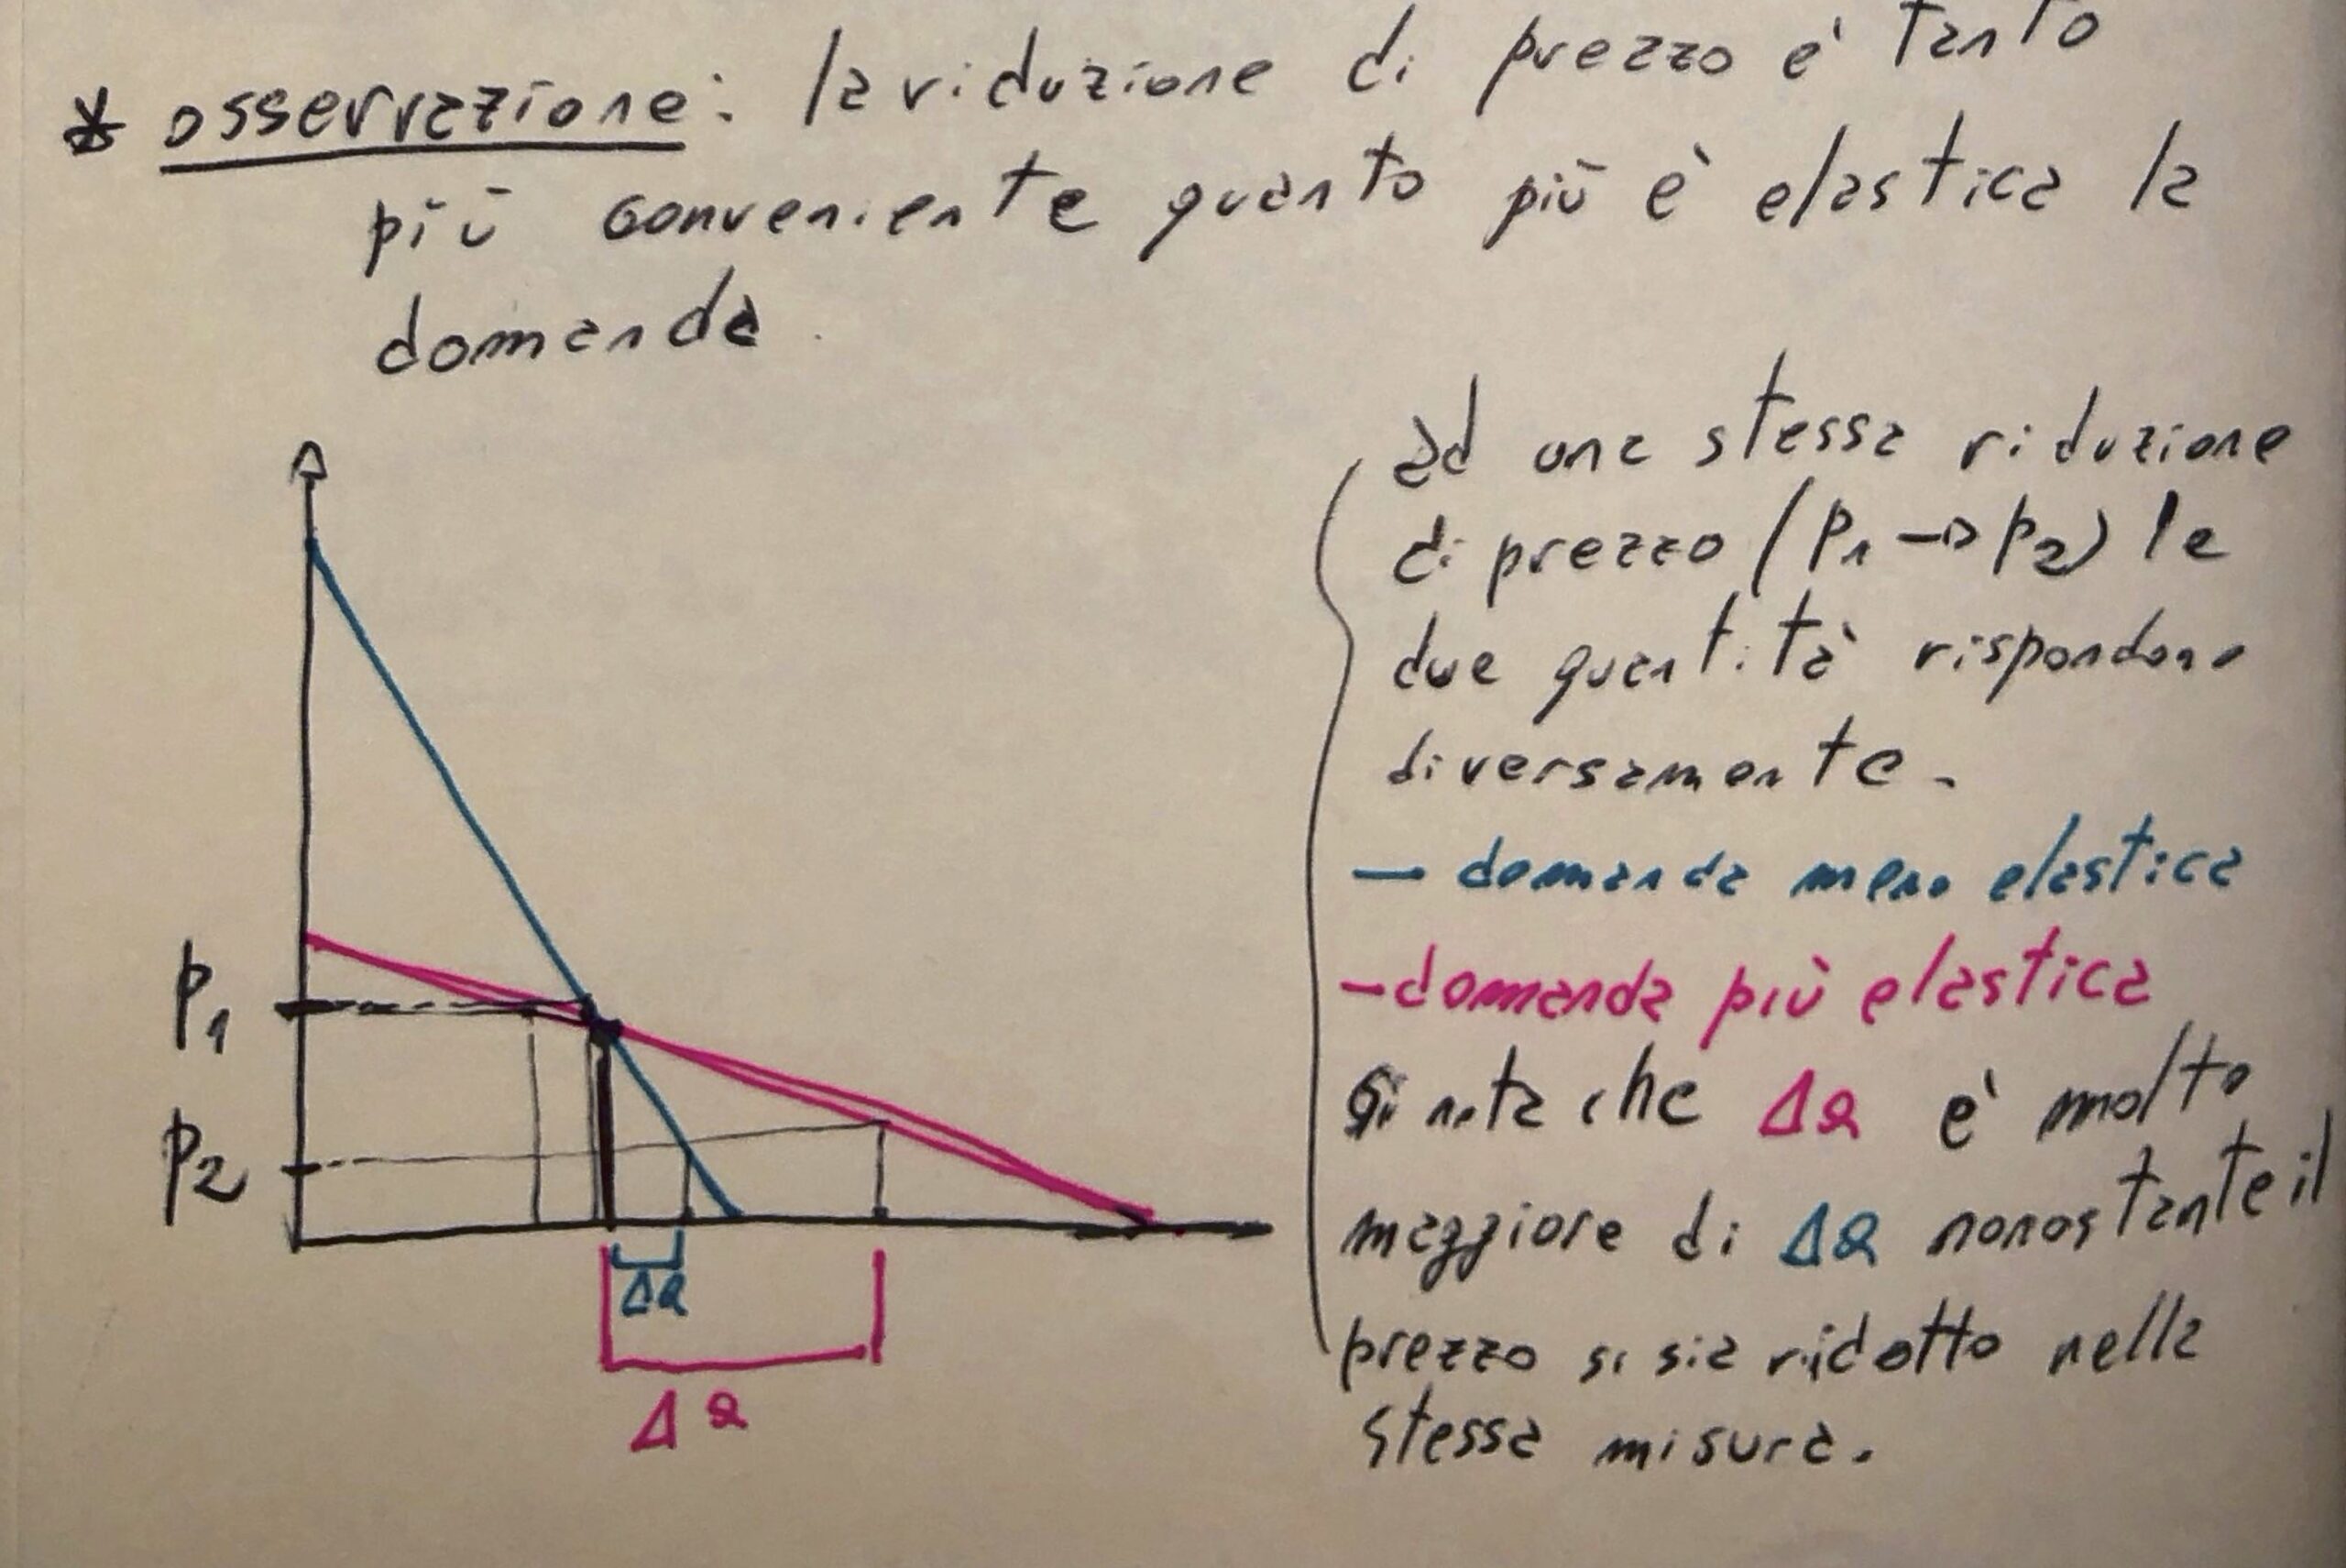 * osservazione: la riduzione di prezzo è tanto
più conveniente quanto più è elastica la
domanda.
ad una stessa riduzione
di prezzo (P1 → P2) le
due quantità rispondono
diversamente.
— domanda meno elastica
- domanda più elastica
Si nota che ΔQ è molto
maggiore di ΔQ nonostante il
prezzo si sia ridotto nella
stessa misura.
P1
P2
ΔQ
ΔQ